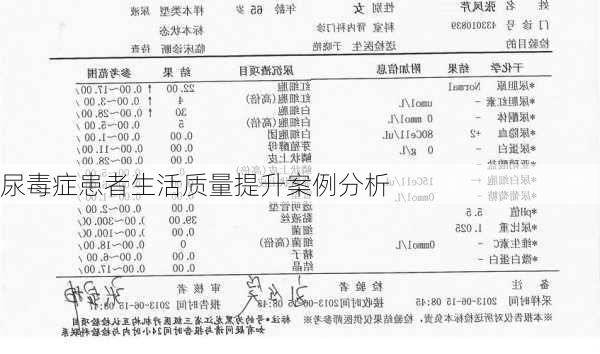 姓名 张凤芹 性别 女 年龄 65 岁 样本类型 尿液
门诊号 433010839 科室 肾内科门诊 样本状态
检验目的 送检医生 于晓艳 临床诊断 待查
干化学 结果 附加信息 尿沉渣项目 结果 参考范围
*尿胆原 Normal 红细胞 22.00 ↑ 0.00~17.00/
*尿胆红素 - umol/L 红细胞(高倍) 4 ↑ 0.00~3.00/
*尿酮体 - 0 mmol/L 白细胞 30 ↑ 0.00~28.00/
*尿隐血 +2 80Cell/uL 白细胞(高倍) 5 0.00~5.00/
*尿蛋白 - 0 g/L 白细胞团 0.00
*亚硝酸盐 芽殖酵母 0.00 0.00~11.00/
*尿白细胞 15Cell/uL 鳞状上皮 0.00~28.00/
尿毒症患者生活质量提升案例分析
*尿葡萄糖 mmol/L
*pH值 5.5 透明管型 0.00 0.00~2.00/
*尿比重 1.025 黏液丝 39.00 0.00~300.00/
*维生素C - 0mmol/L 细菌 0.00 0.00~100.00/
*微白蛋白 - 细菌(高倍) 0 0.00~18.00/
精子 0.00 0.00~6.00/
结晶 0.00 0.00~17.00/
备注 检验者 审核者
采样时间 2013-06-15 08:45 接收时间 2013-06-05 报告时间 2013-06-15
*本报告仅对所送检标本负责，检验结果仅供医师参考※ 标注*号的为黑龙江省三级医疗机构互认检验项目
如有疑问请与报告时间24小时内与检验科联系